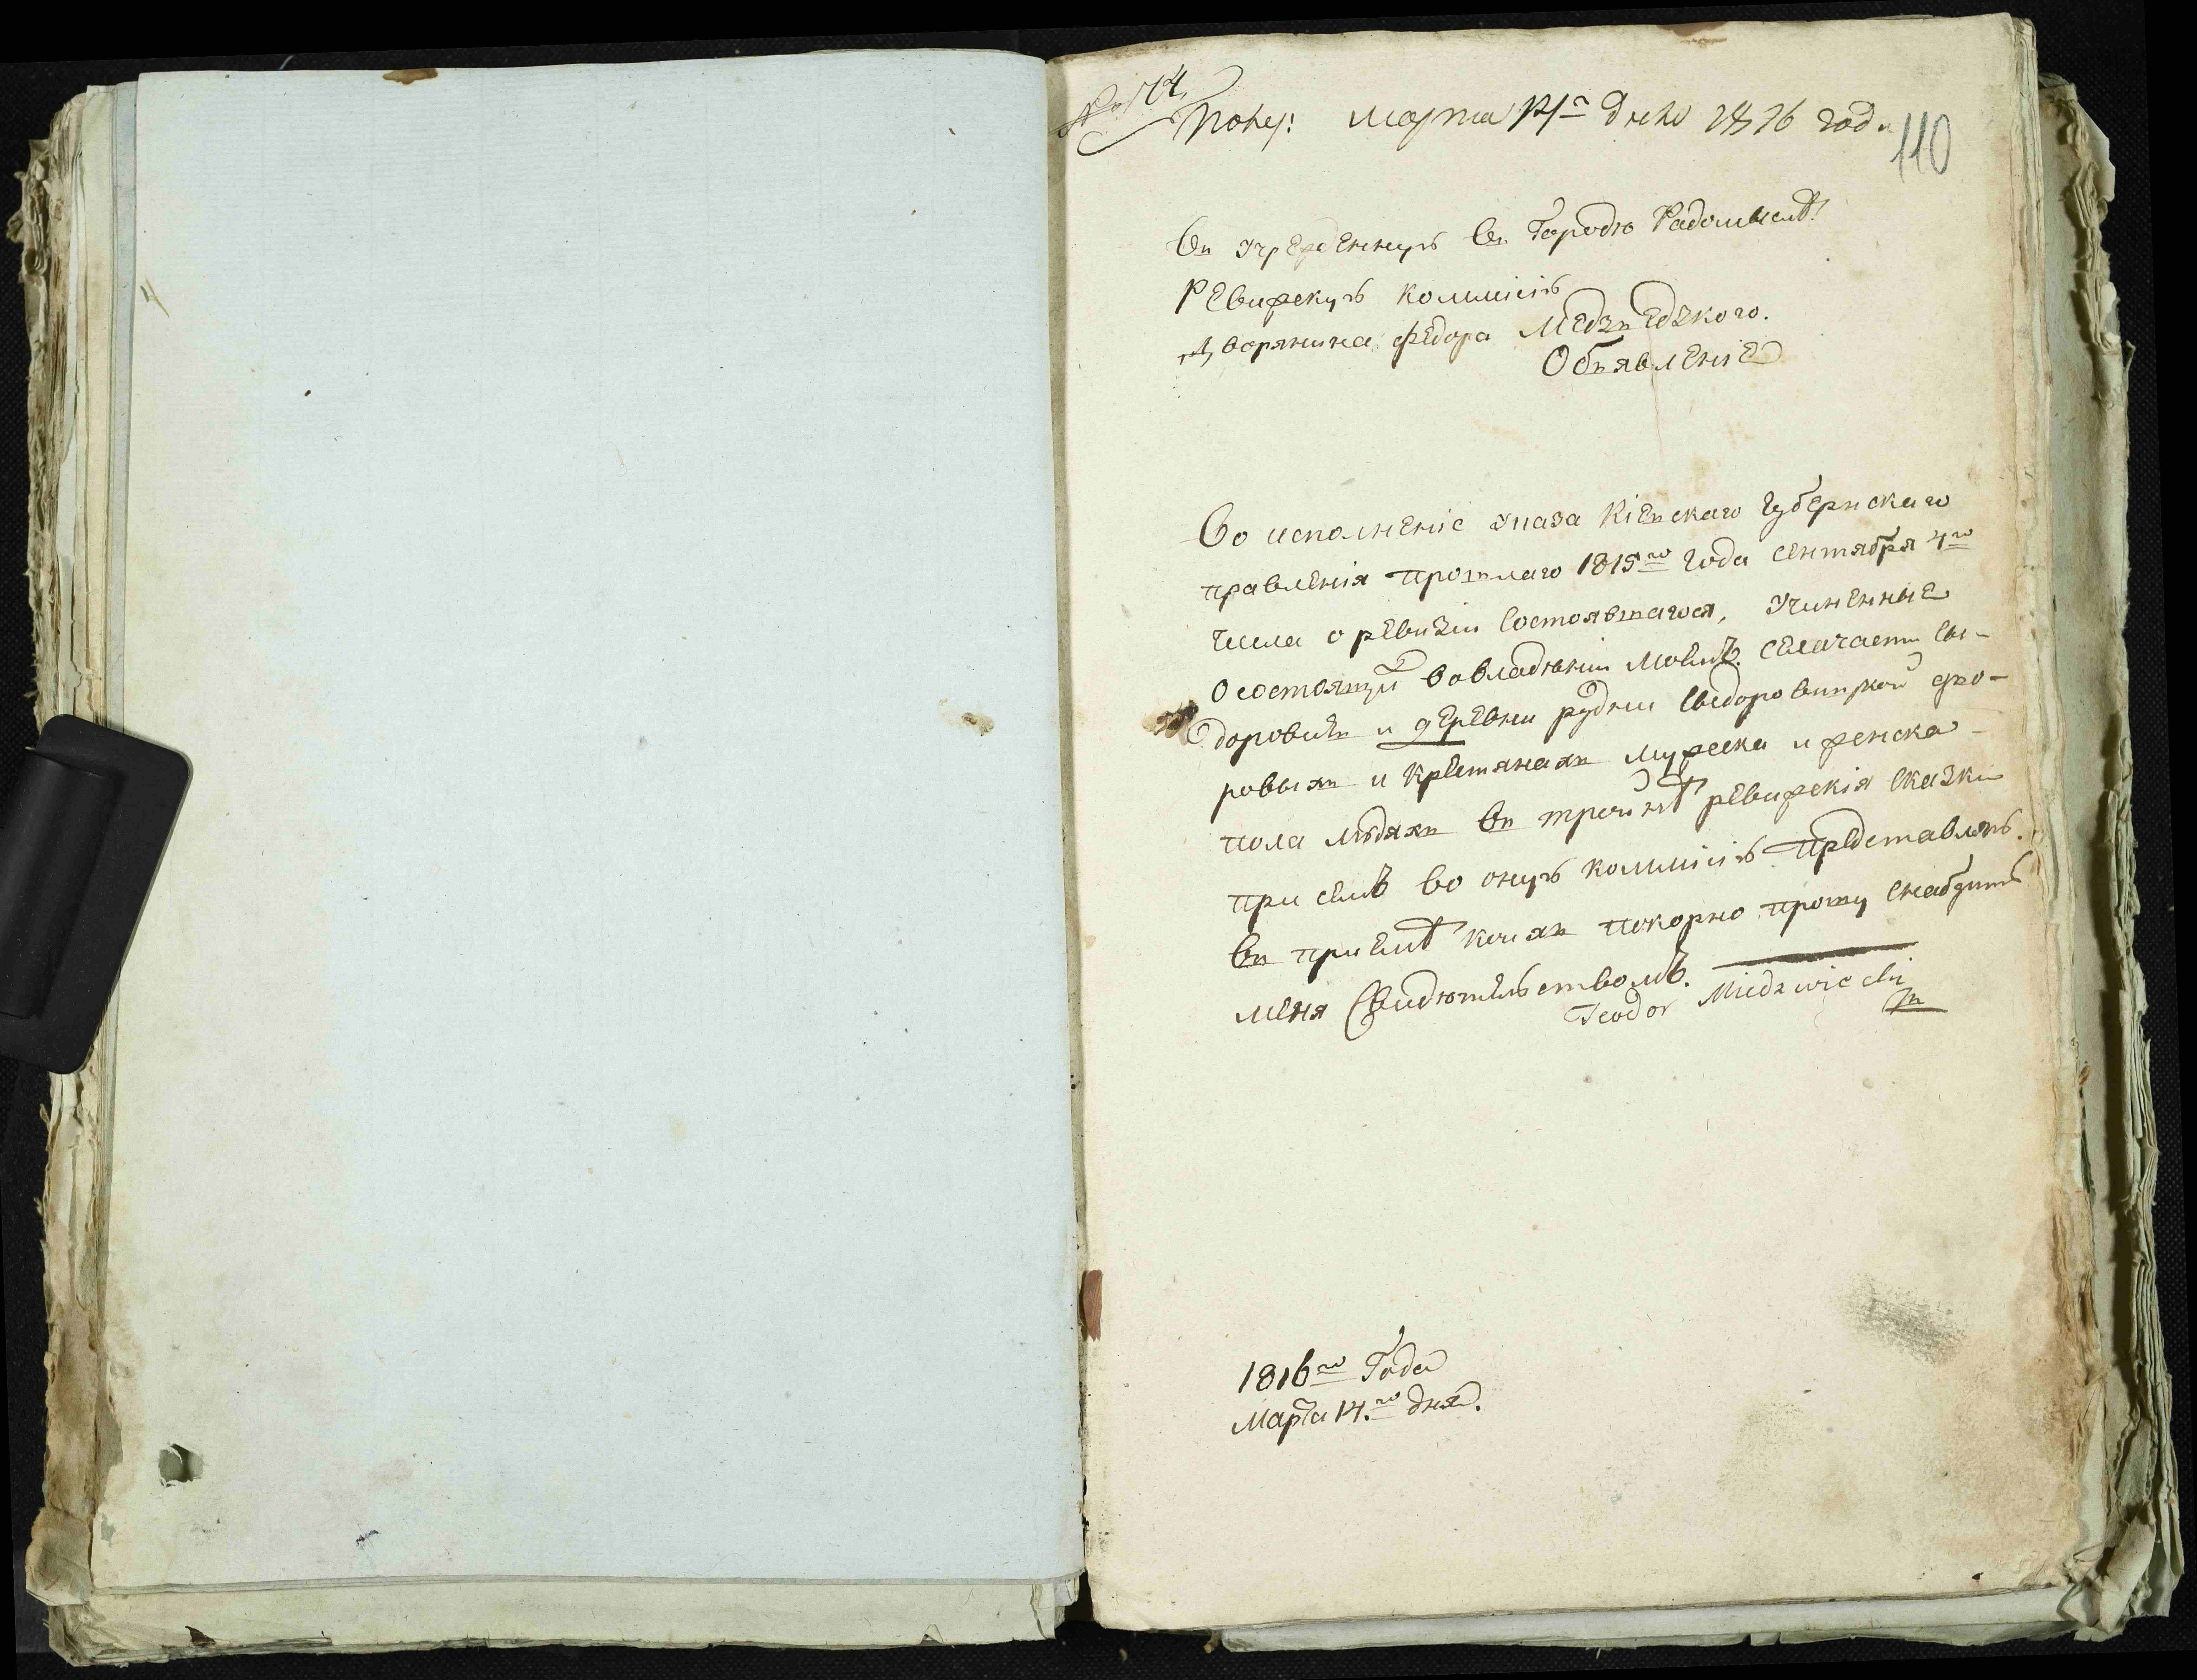 № 174.
Получ: Марта 14го дня 1816 года
110
Въ учрежденную въ Городѣ Радомыслѣ
Ревижскую коммисію
Дворянина Федора Медзведзкого.
Объявленіе
Во исполненіе указа Кіевскаго Губернскаго
правленія прошлаго 1815го года сентября 4го
числа о ревизіи состоявшагося, учиненные
о состоящи вовладѣніи моемъ.
доровки и деревни рудни Сидоровицкой дво-
ровыхъ и крестьянахъ мужеска и женска
пола людяхъ въ тройнѣ ревижскія сказки
при семъ во оную коммисію представляю.
въ пріемѣ коихъ покорно прошу снабдить
меня Свидѣтельствомъ.
Teodor Miedzwiecki
1816го Года
Марта 14.го дня.